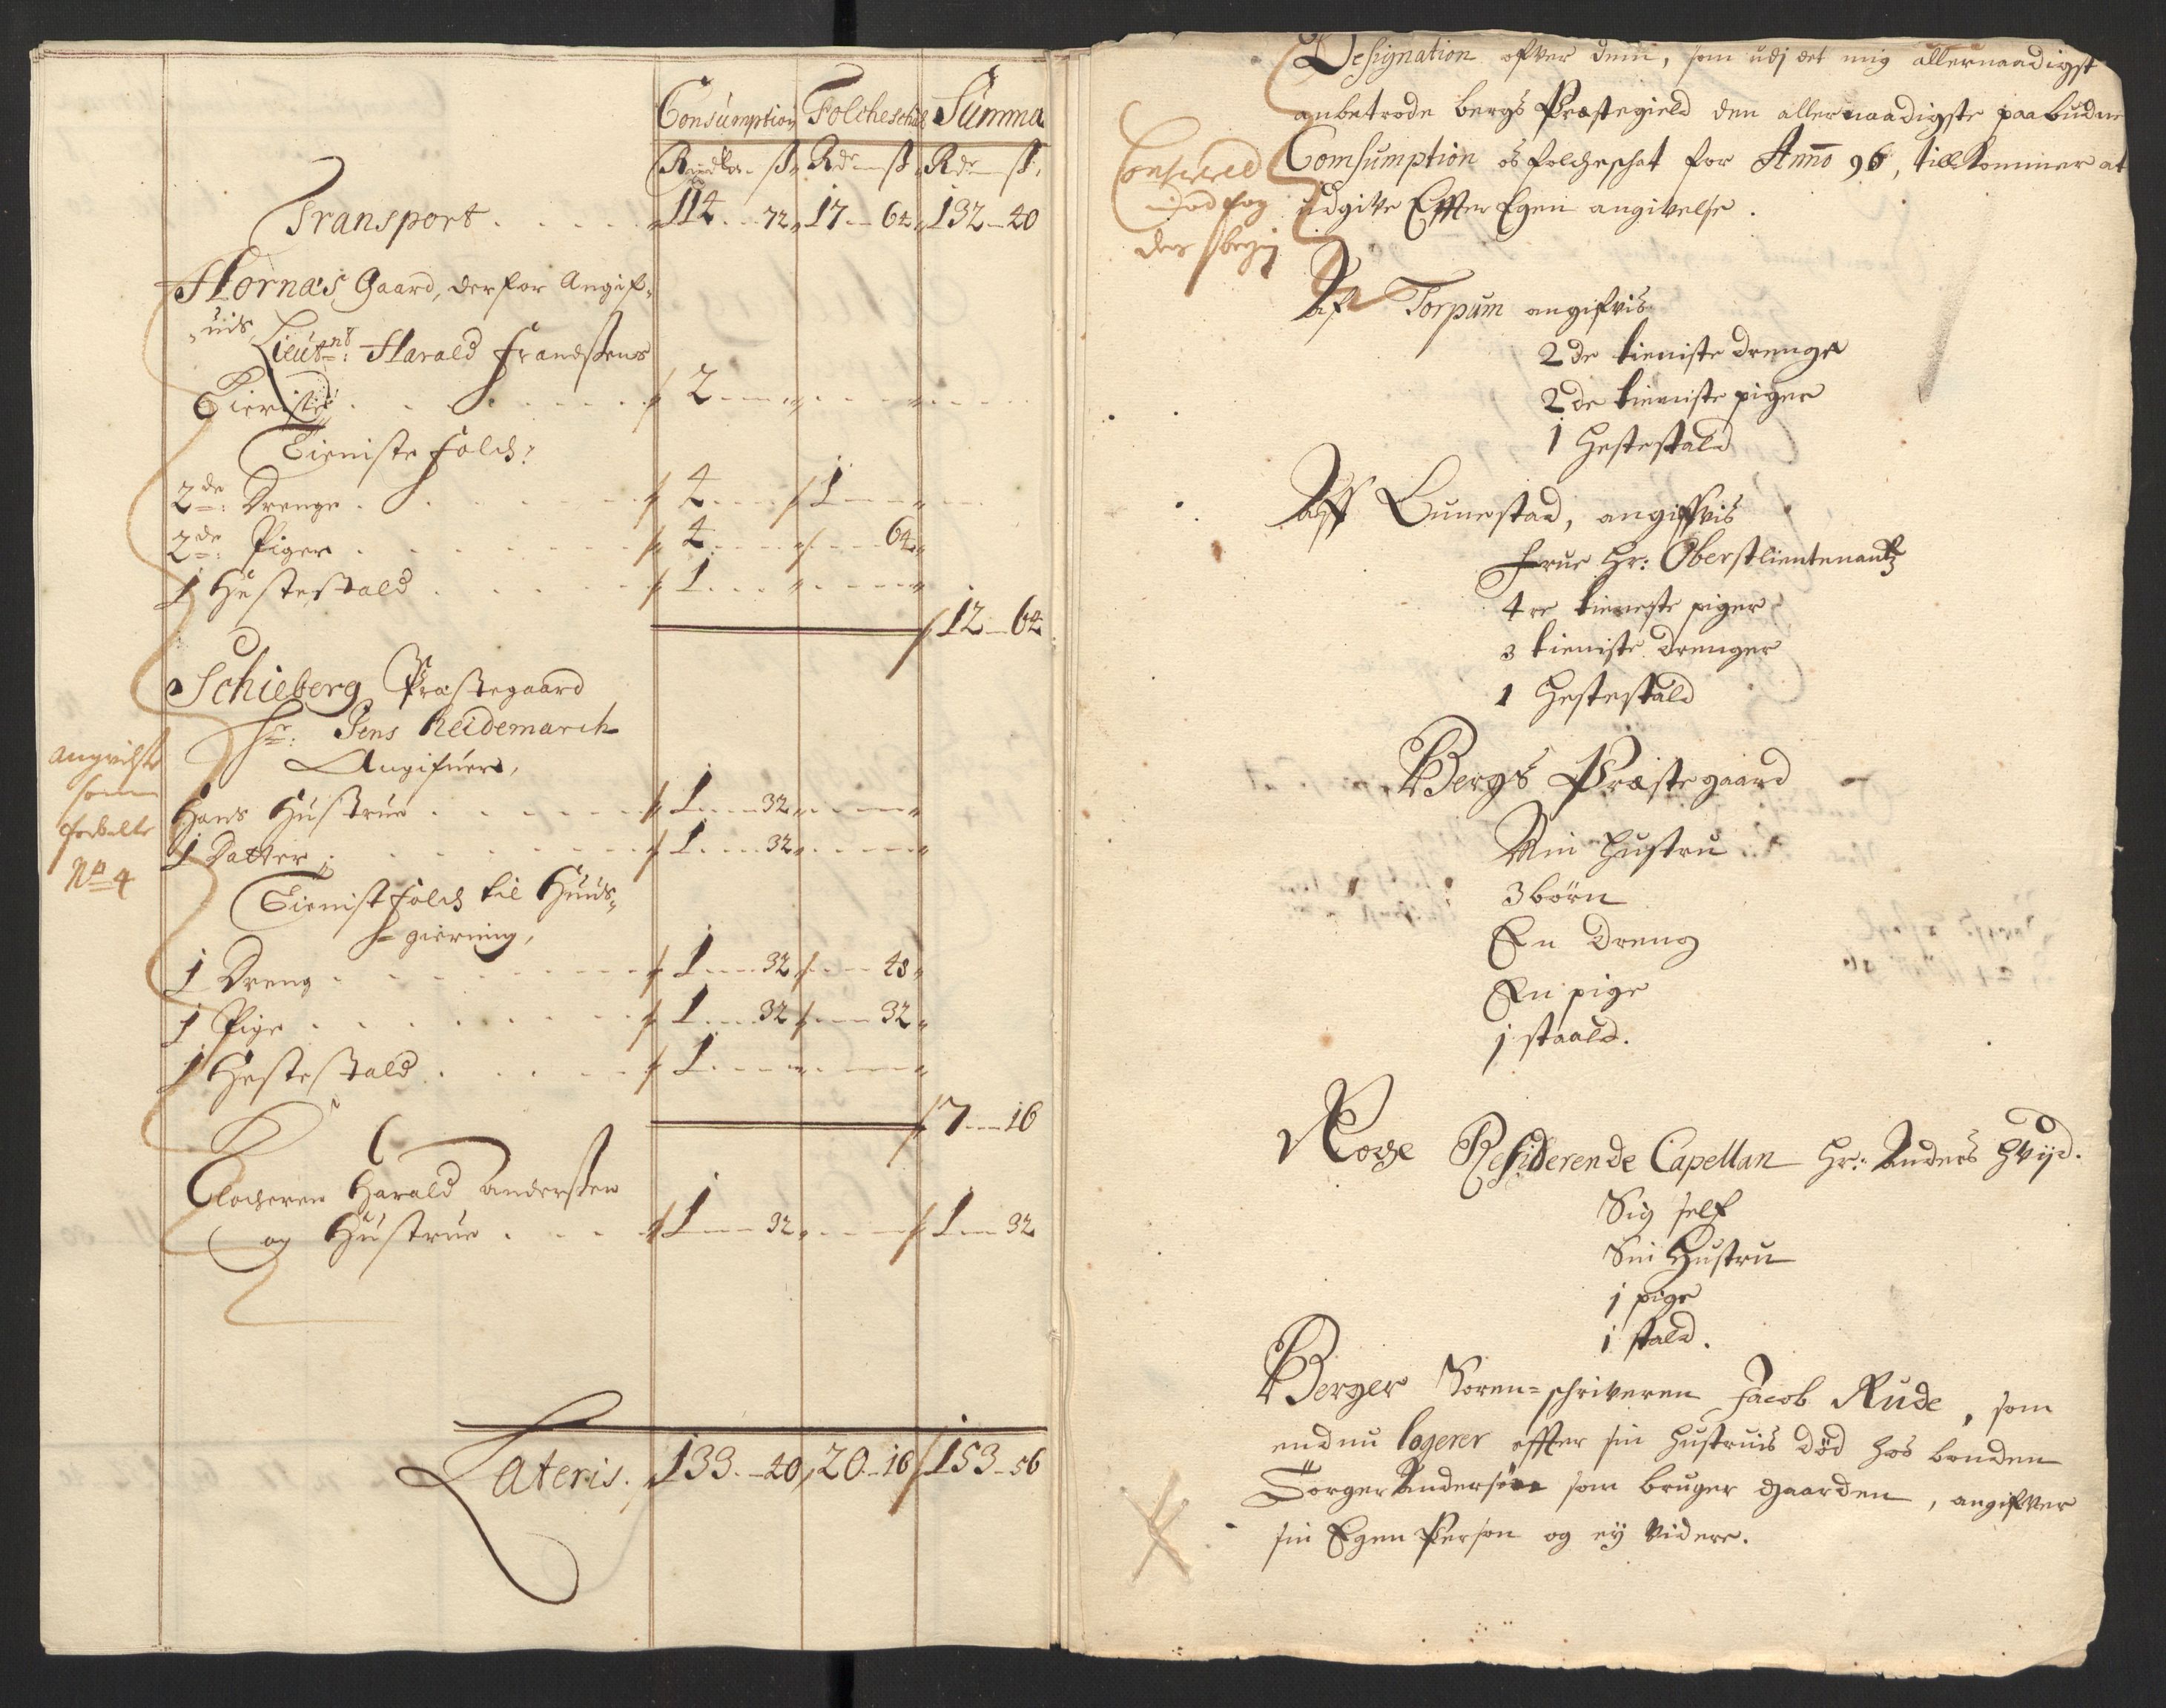 Consumption Folcheschat Summa
Rixdlr. ß. Rdr ß. Rdr ß.
Transport . . . . . 114 .. 72 17 .. 64 132 .. 40
Hornæs Gaard, derfor Angif-
uis Lieutnt: Harald Frandsens
2
Tieniste Folch:
2de: Drenge . . . . . 4 1
2de: Piger . . . . . 4 64
1 Hestestald . . . . . 1
12 .. 64
Schieberg Præstegaard
Hr: Jens Reidemarch
Angifuer,
Hans Hustrue . . . . . 1 .. 32
1 Datter . . . . . 1 .. 32
Tienist Folch til Huus-
gierning,
1 Dreng . . . . . 1 .. 32 48
1 Pige . . . . . 1 .. 32 32
1 Hestestald . . . . . 1
7 .. 16
Clocheren Harald Andersen
og Hustrue . . . . 1 .. 32 1 .. 32
Lateris. 133 .. 40 20 .. 16 153 .. 56
No 4
Designation ofver dem, som udj det mig allernaadigst
anbetrode Bergs Præstegield den allernaadigste paabudne
Comsumption og folcheschat for Anno 96, tillkommer at
udgive Effter Egen angivelse.
Af Torpum angifvis
2de tieniste drenge
2de tieniste piger
1 Hestestald
Aff Bunestad, angifvis
Frue Hr: Oberstlieutenantz
4re tieneste piger
3 tieniste drenger
1 Hestestald
Bergs Præstegaard
Min Hustru
3 børn
En Dreng
En pige
1 staald.
Residerende Capellan Hr: Anders Hvijd.
Sig self
Sin Hustru
1 pige
1 stald.
Berger Soren-schriveren Jacob Rude, som
endnu logerer effter sin Hustruis Død hos bonden
Torger Andersøn som bruger gaarden, angifver
sin Egen Person og ej videre.